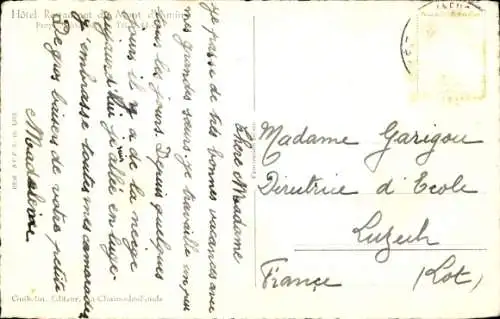 Hôtel Restaurant du Mont d'Amin
Chère Madame
Je passe de très bonnes vacances avec
mes grandes sœurs. Je travaille un peu
tous les jours. Depuis quelques
jours il y a de la neige
aujourd'hui je suis allée en luge.
J'embrasse toutes mes camarades
De gros baisers de votre petite
Madeleine
Madame Garigou
Directrice d'Ecole
Luzech
France (Lot)
Guilbelin, Editeur, La Chaux-de-Fonds